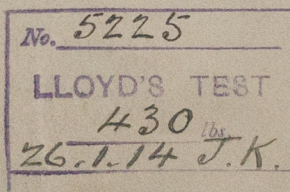 No. 5225
LLOYD'S TEST
430 lbs.
26.1.14 J.K.